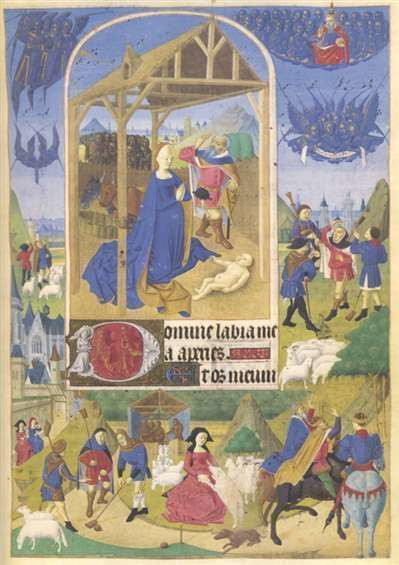 Domine labia me
a aꝑies.
Et os meum